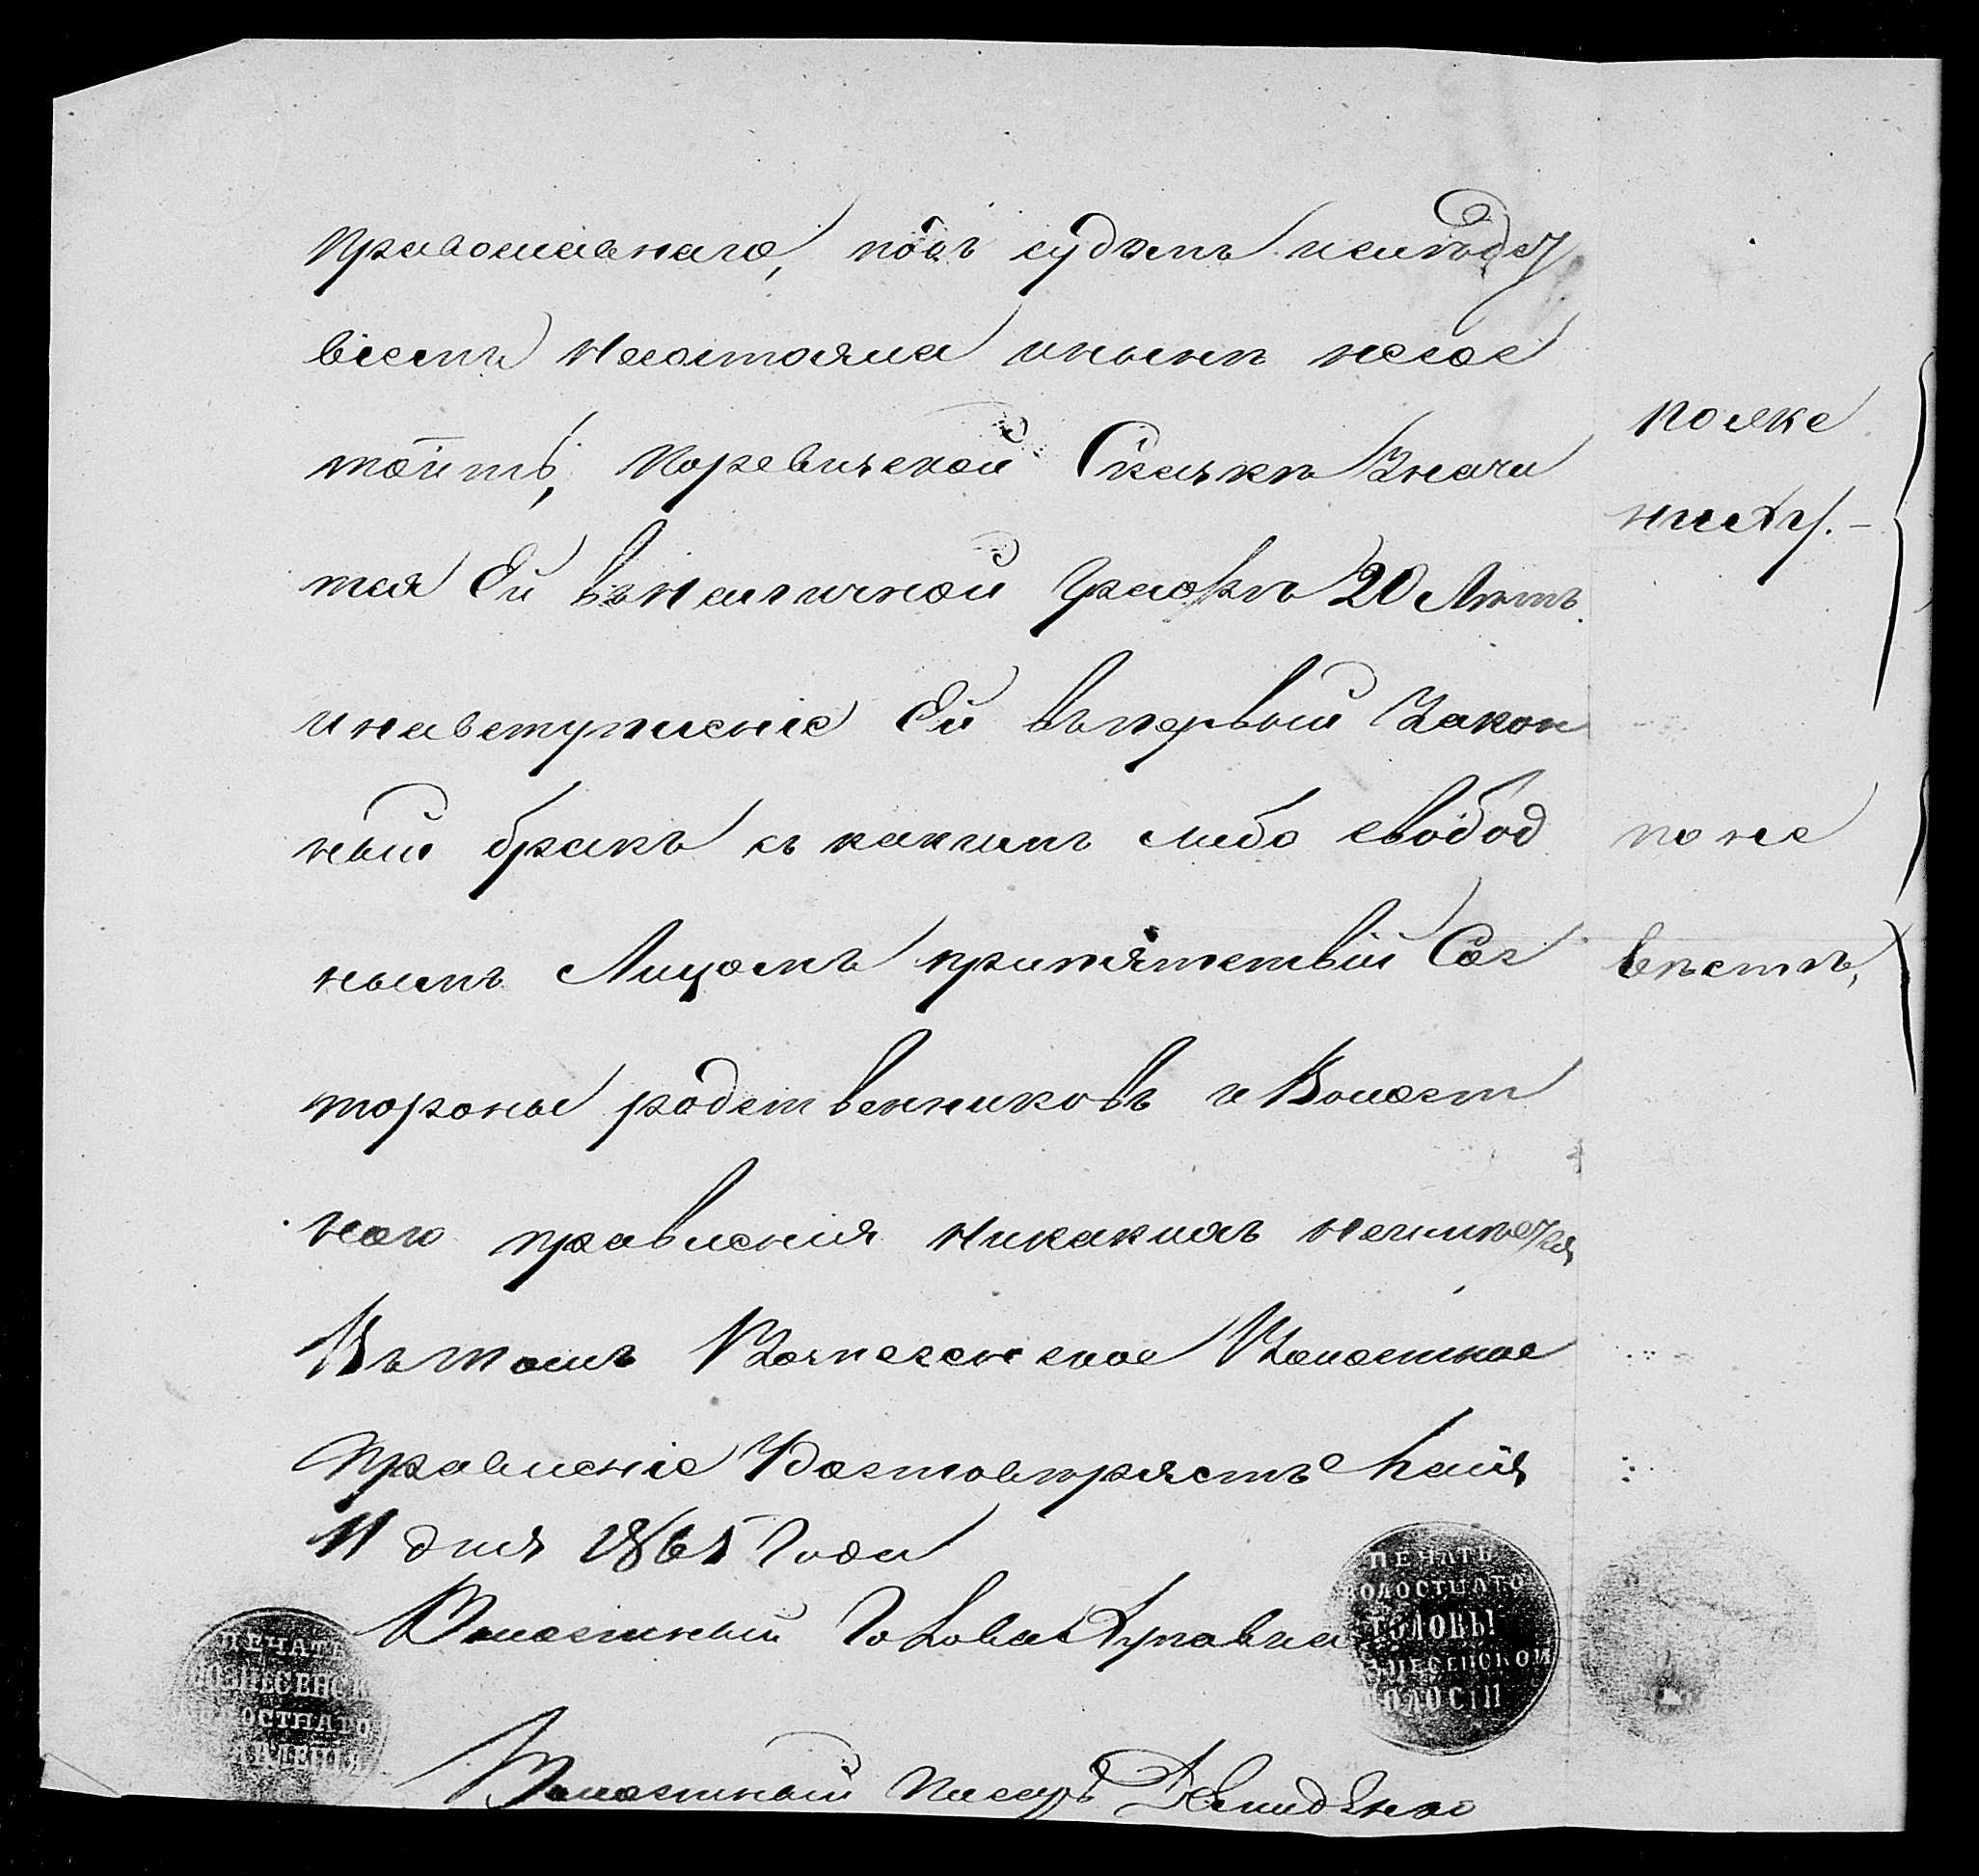 Православнаго, подъ судомъ исльд
віемъ Несостояла инынѣ несос
тоитъ, Поревизской Скаскѣ Значи
тся Ей въналичной Графѣ 20 Лѣтъ.
инавступленіе Ей въпервый Закон
ный бракъ съ какимъ либо свобод
нымъ Лицомъ припятствій Сос
тороны родственниковъ и Волост
наго правленія никакихъ неимѣется,
Въ томъ Вознесенское Волостное
Правленіе Удостовѣряетъ Маія
11 дня 1865 Года
Волостный Голова
Волостный Писарь
ПЕЧАТЬ
ВОЗНЕСЕНСК
ВОЛОСТНАГО
ПРАВЛЕНІЯ
ПЕЧАТЬ
ВОЛОСТНАГО
ГОЛОВЫ
ВОЗНЕСЕНСКОЙ
ВОЛОСТИ
по не
вѣстѣ,